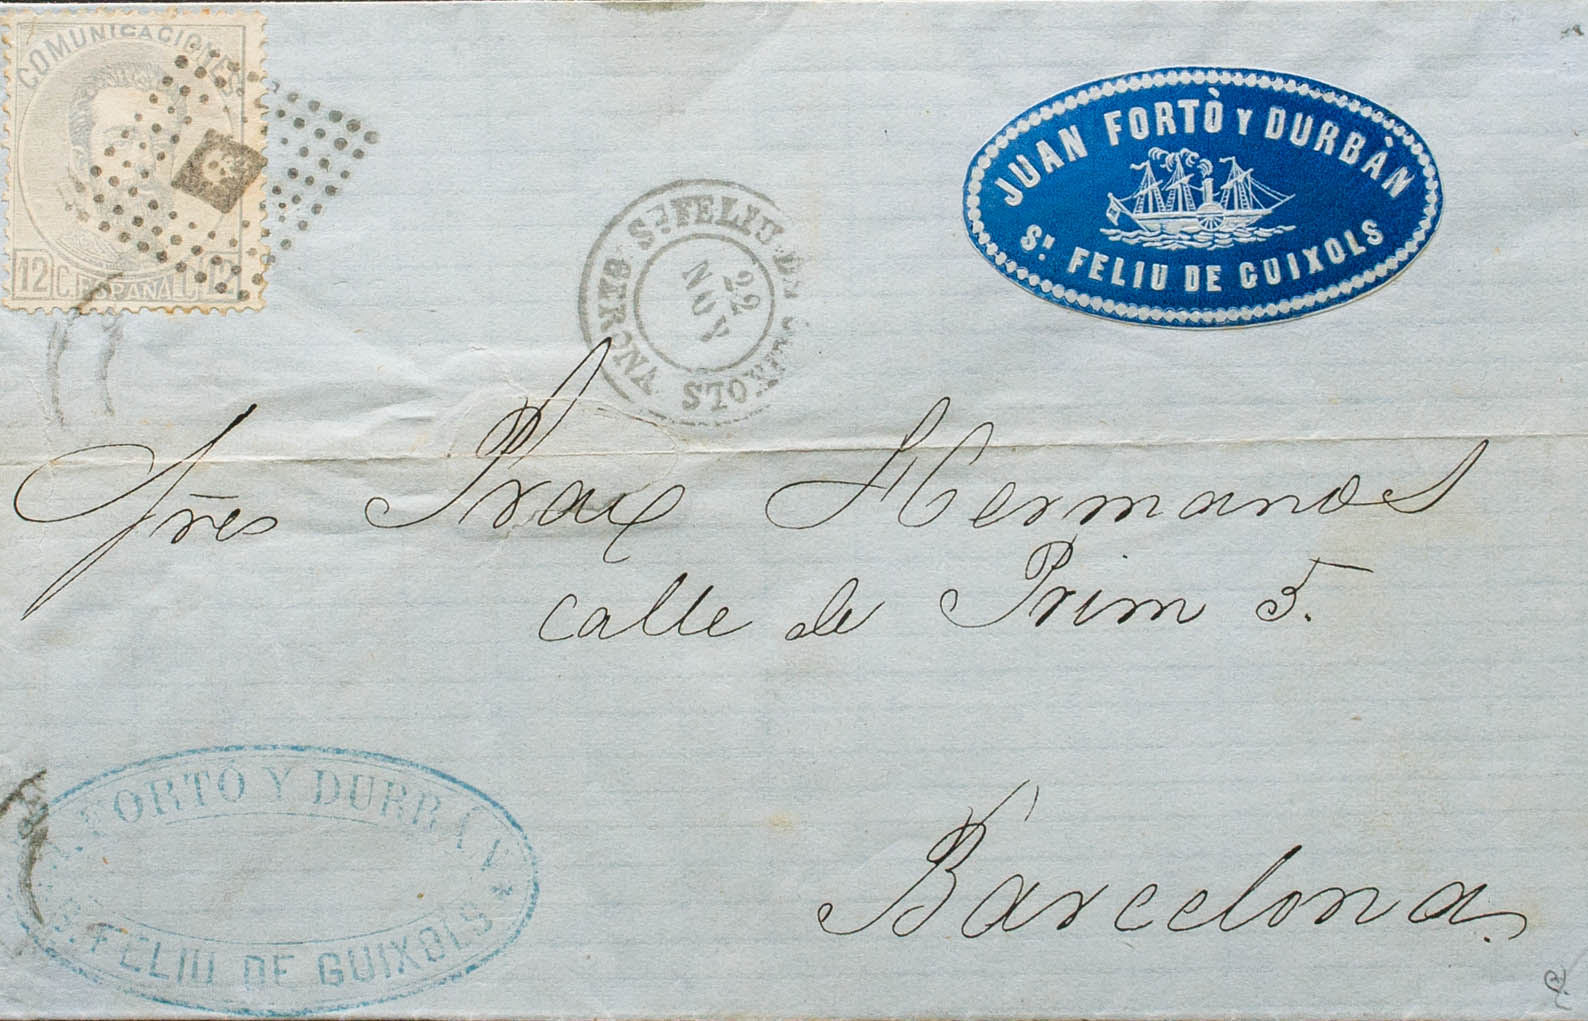 COMUNICACIONES
12 C. ESPAÑA C. 12
JUAN FORTÒ Y DURBÀN
Sn. FELIU DE GUIXOLS
Sn FELIU DE GUIXOLS
GERONA
22
NOV
Sres Prax Hermanos
calle de Prim 5.
Barcelona.
J. FORTÓ Y DURBÁN
S. FELIU DE GUIXOLS